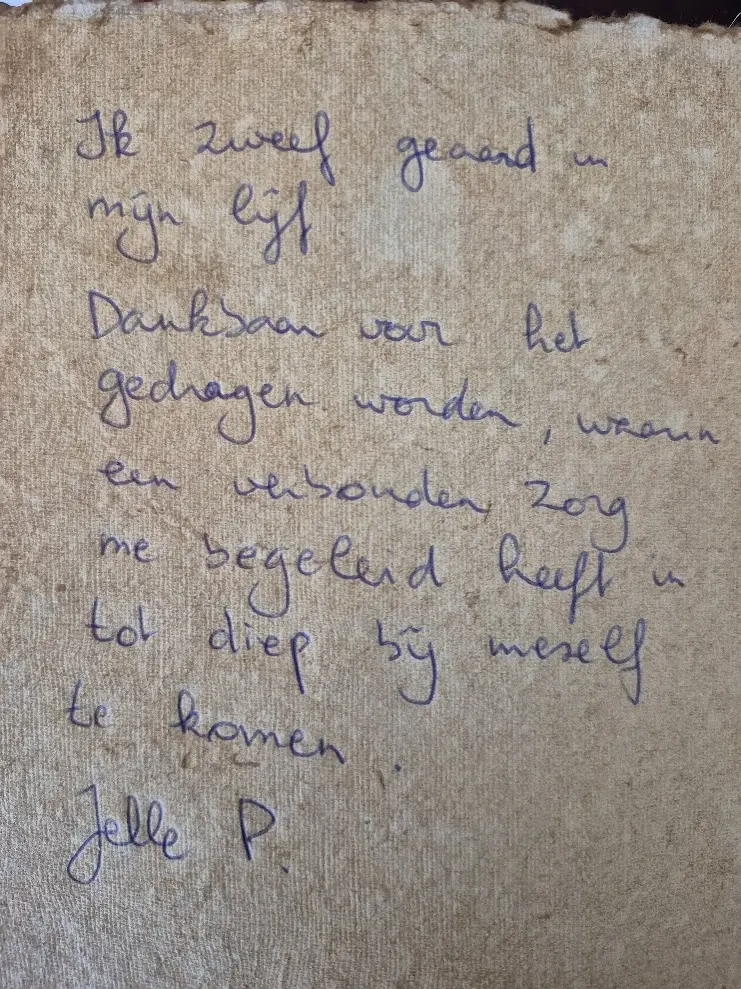 Ik zweef geaard in
mijn lijf
Dankbaar voor het
gedragen worden, waarin
een verbonden zorg
me begeleid heeft in
tot diep bij meself
te komen.
Jelle P.